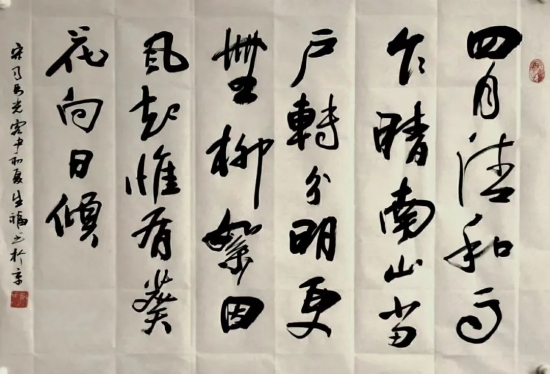 四月清和雨
乍晴南山当
戶轉分明更
無柳絮因
風起惟有葵
花向日傾
宋司马光客中初夏生福书於京